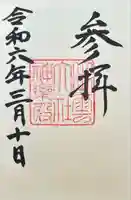 参拝
令和六年三月十日